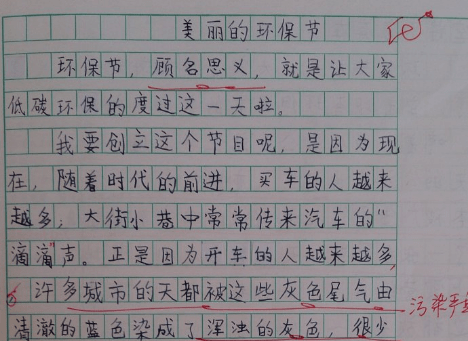 美丽的环保节
环保节，顾名思义，就是让大家
低碳环保的度过这一天啦。
我要创立这个节目呢，是因为现
在，随着时代的前进，买车的人越来
越多；大街小巷中常常传来汽车的“
滴滴”声。正是因为开车的人越来越多，
许多城市的天都被这些灰色尾气由
污染严
清澈的蓝色染成了浑浊的灰色，很少